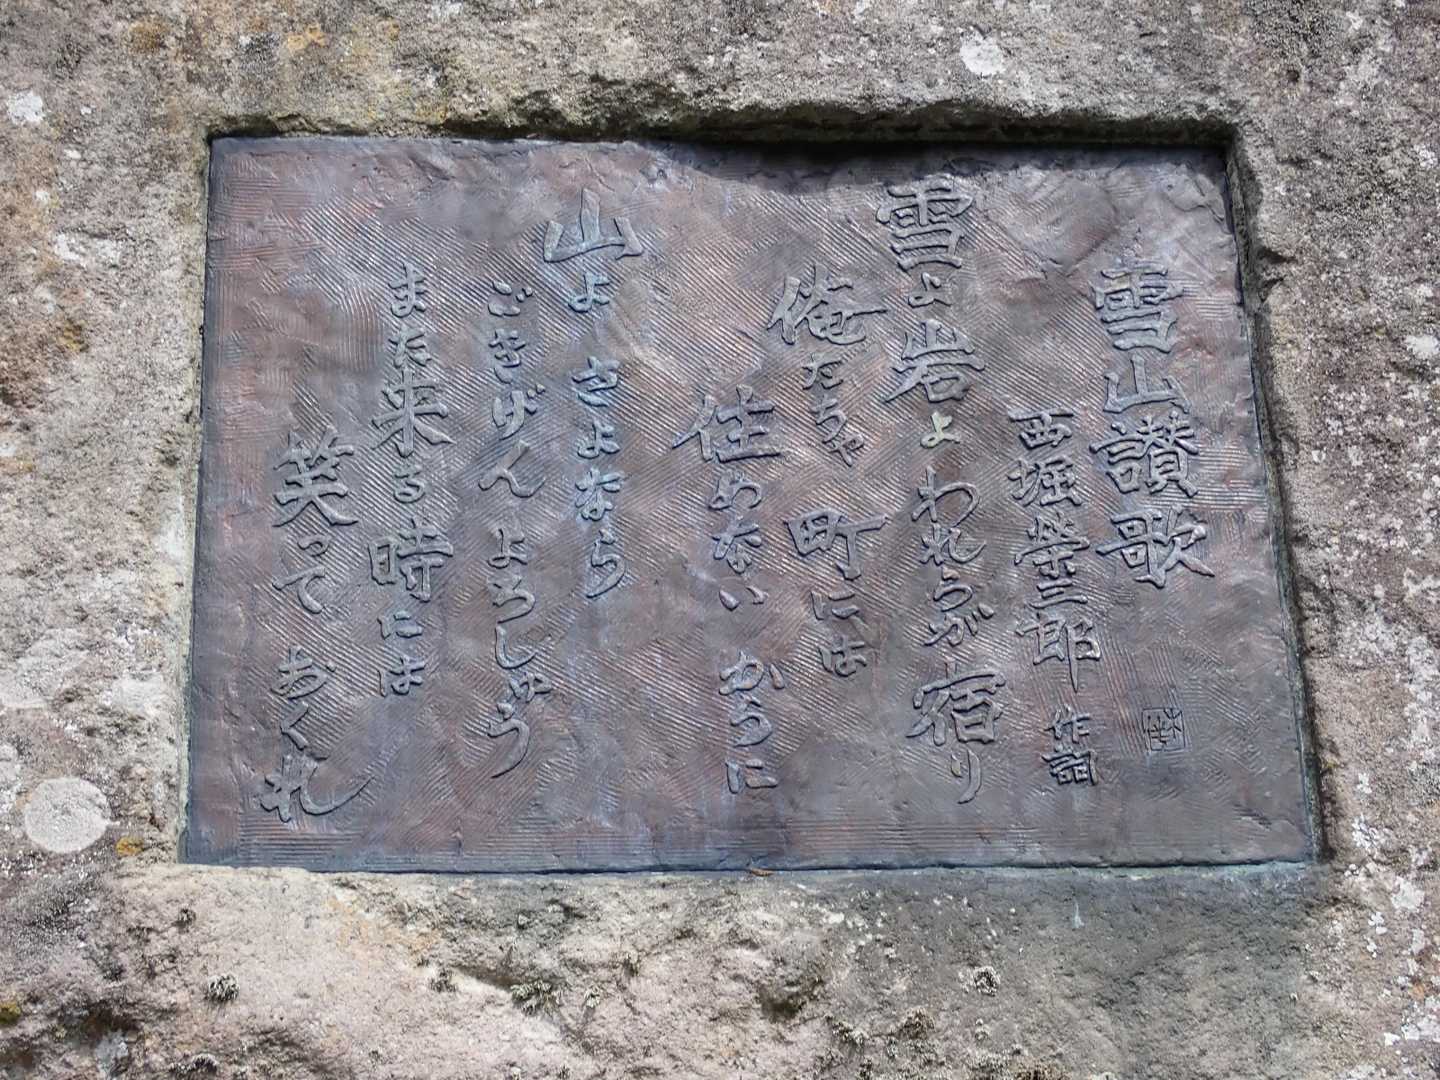 雪山讃歌
西堀榮三郎 作詞
雪よ岩よ われらが宿り
俺たちゃ 町には
住めない からに
山よ さよなら
ごきげん よろしゅう
また来る時には
笑って おくれ